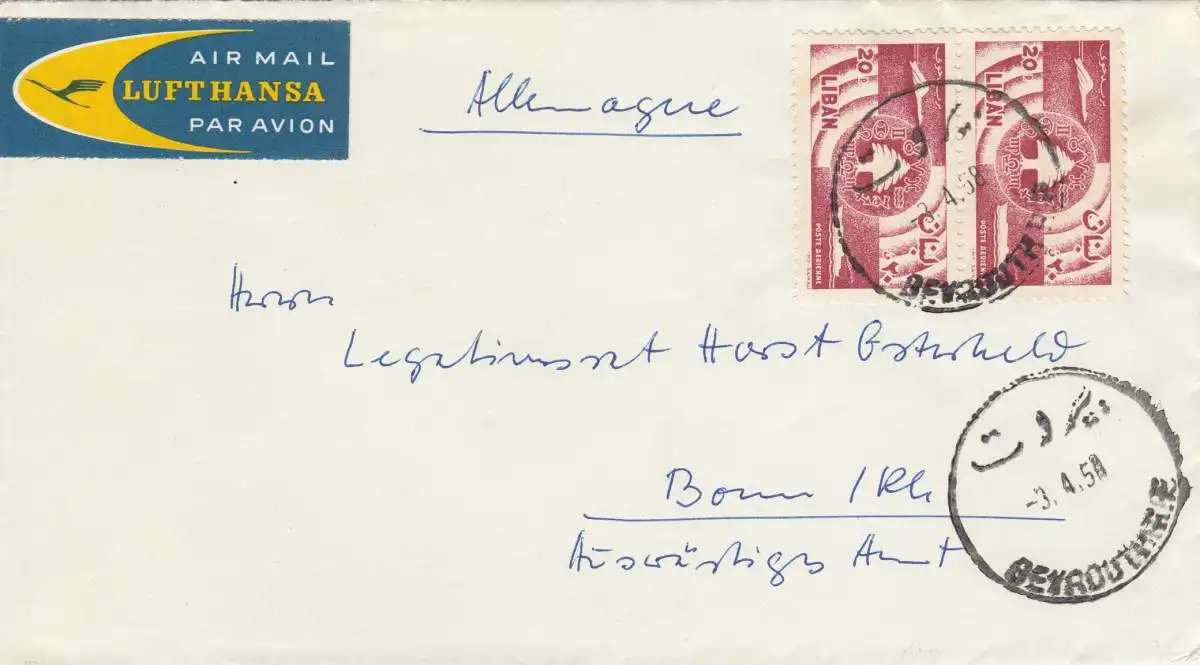 AIR MAIL
LUFTHANSA
PAR AVION
Allemagne
20 P.
LIBAN
لبنان
٢٠
POSTE AÉRIENNE
20 P.
LIBAN
لبنان
٢٠
POSTE AÉRIENNE
بيروت
-3. 4. 58
BEYROUTH R.P.
Herrn
Legationsrat Horst Osterheld
Bonn / Rh
Auswärtiges Amt
بيروت
-3. 4. 58
BEYROUTH R.P.